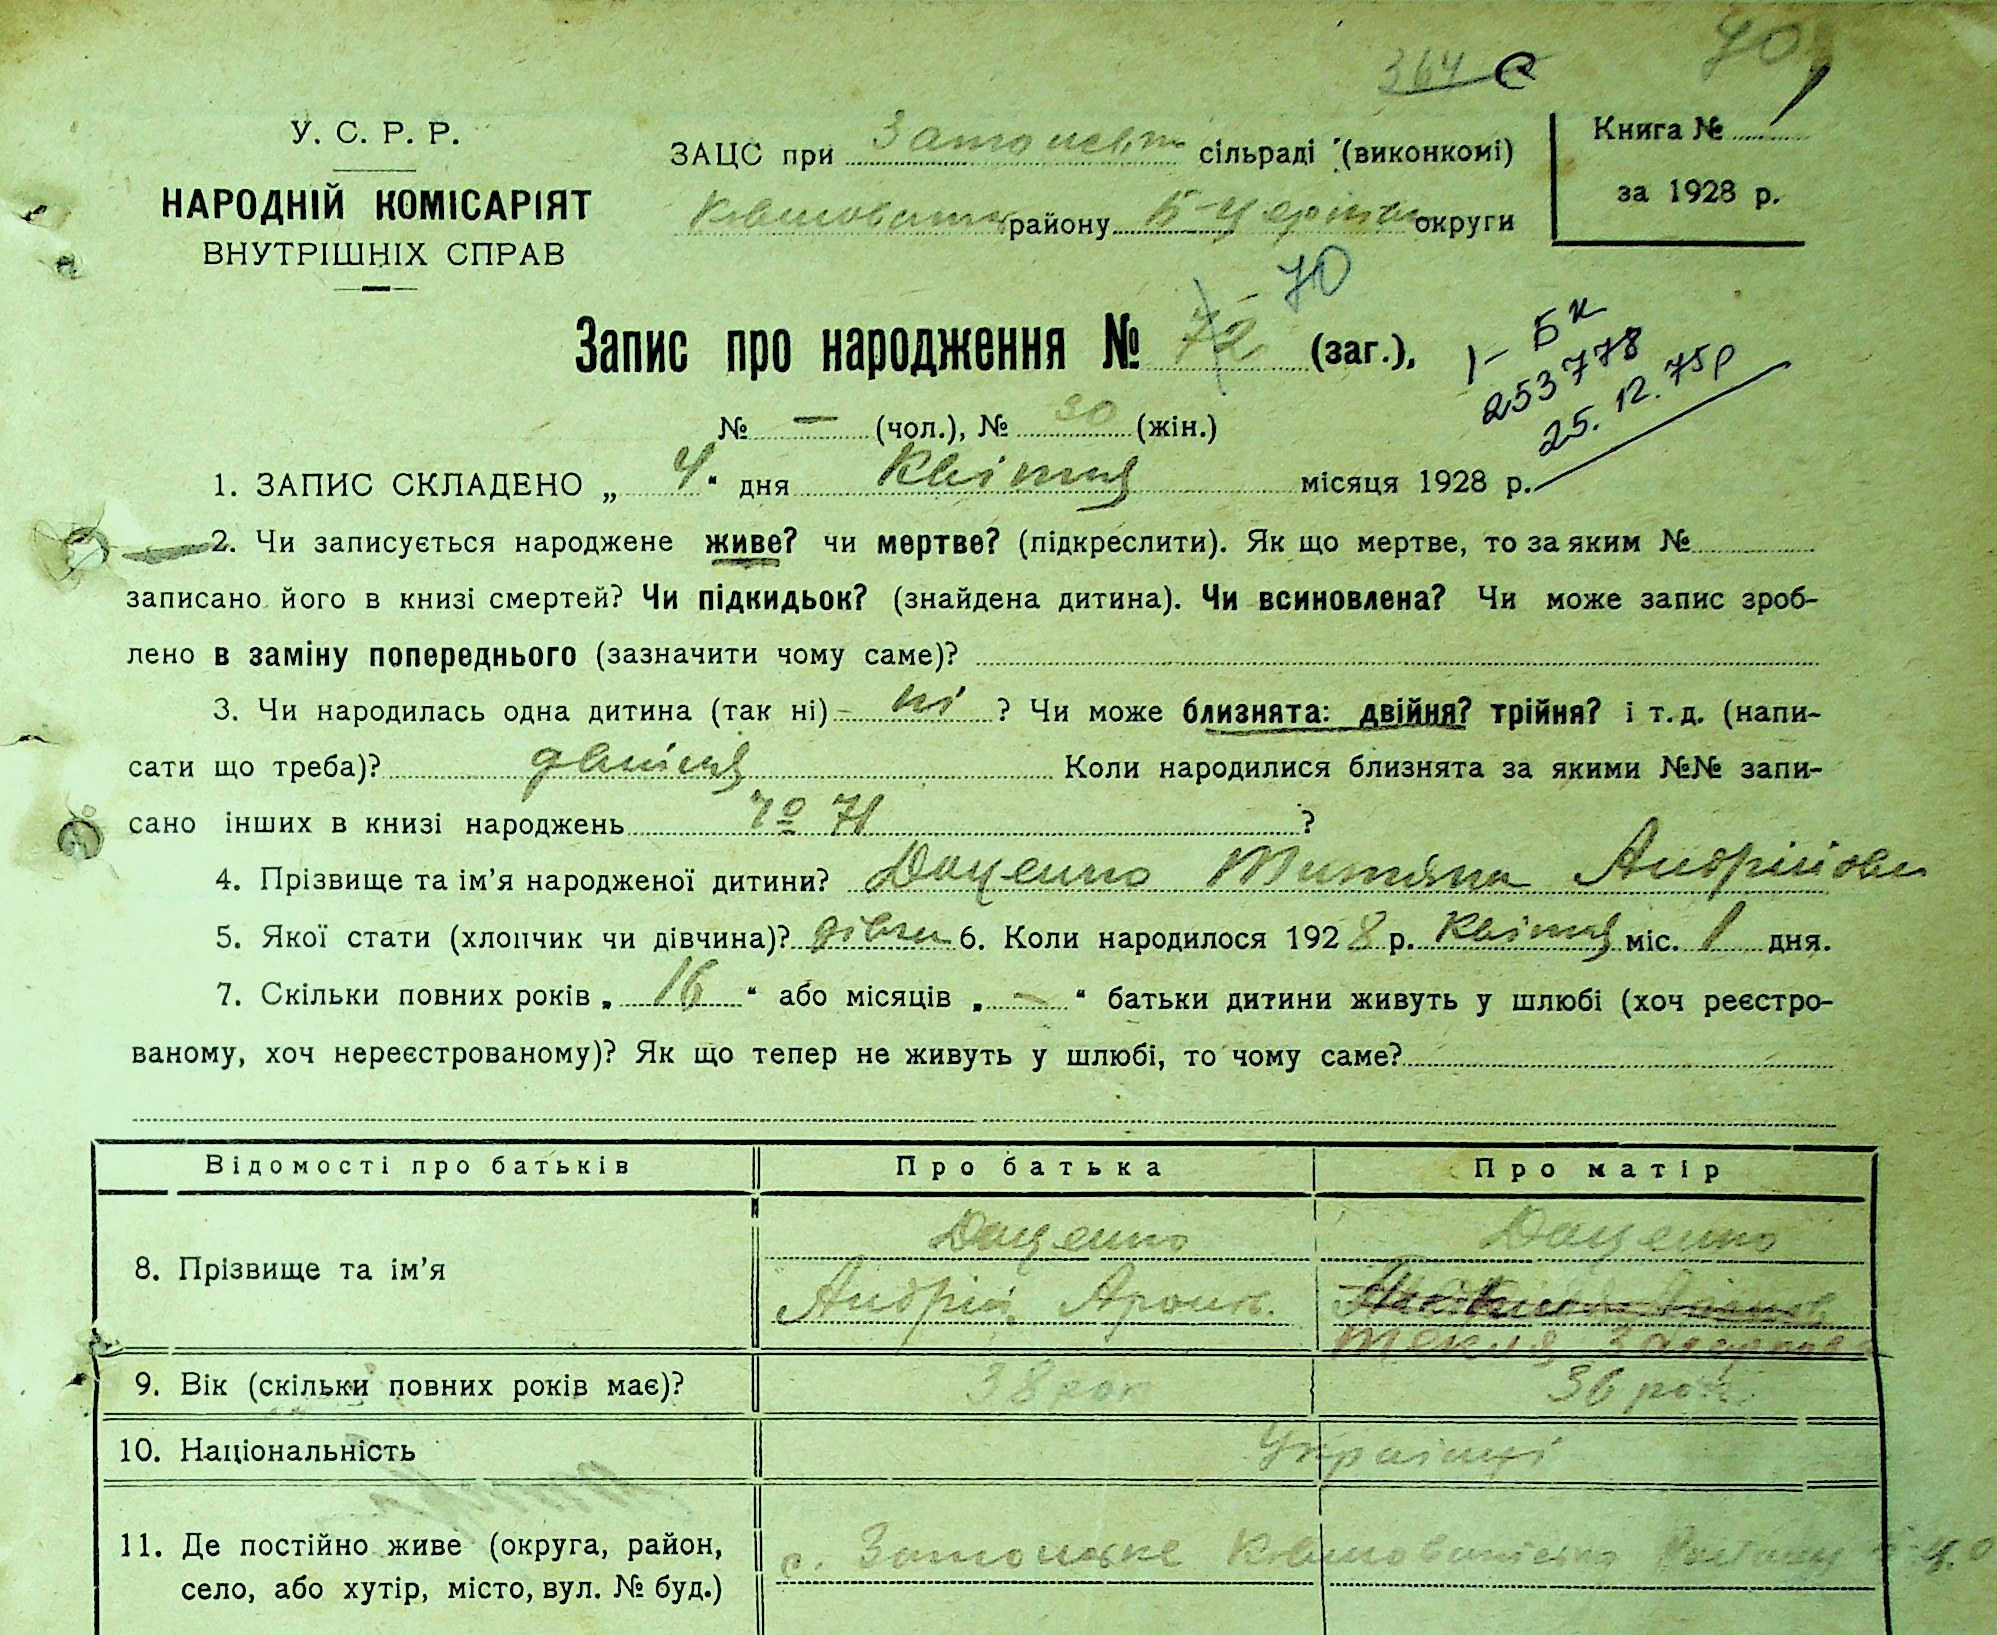 364 70
У. С. Р. Р.
НАРОДНІЙ КОМІСАРІЯТ
ВНУТРІШНІХ СПРАВ
ЗАЦС при сільраді (виконкомі)
району Б-Церків округи
Книга № 1
за 1928 р.
70
Запис про народження № 72 (заг.),
№ — (чол.), № 30 (жін.)
1 - БК
253778
25.12.75р
1. ЗАПИС СКЛАДЕНО „ 4 “ дня Квітня місяця 1928 р.
2. Чи записується народжене живе? чи мертве? (підкреслити). Як що мертве, то за яким №
записано його в книзі смертей? Чи підкидьок? (знайдена дитина). Чи всиновлена? Чи може запис зроб-
лено в заміну попереднього (зазначити чому саме)?
3. Чи народилась одна дитина (так ні) ні ? Чи може близнята: двійня? трійня? і т. д. (напи-
сати що треба)? двійня Коли народилися близнята за якими №№ запи-
сано інших в книзі народжень № 71 ?
4. Прізвище та ім’я народженої дитини? Даценко Андрійови
5. Якої стати (хлопчик чи дівчина)? дівчи 6. Коли народилося 1928 р. Квітня міс. 1 дня.
7. Скільки повних років „ 16 “ або місяців „ — “ батьки дитини живуть у шлюбі (хоч реєстро-
ваному, хоч нереєстрованому)? Як що тепер не живуть у шлюбі, то чому саме?
Відомості про батьків Про батька Про матір
8. Прізвище та ім’я Даценко Даценко
Андрій
Текля
9. Вік (скільки повних років має)? 38 рок 36 рок
10. Національність Українці
11. Де постійно живе (округа, район,
село, або хутір, місто, вул. № буд.)
с.